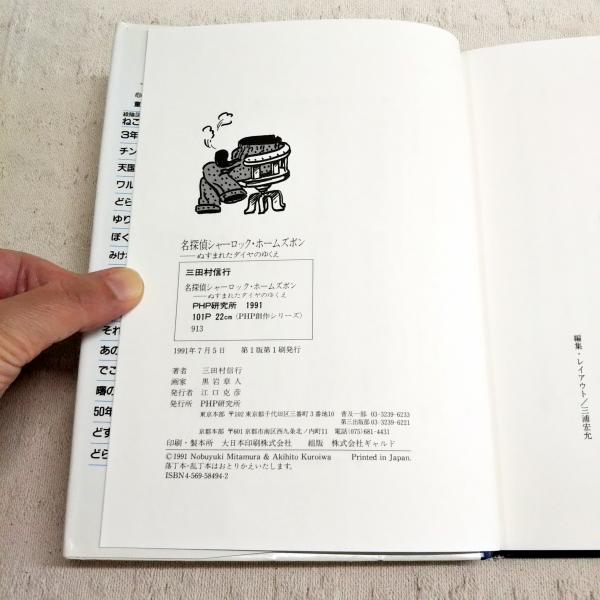 名探偵シャーロック・ホームズボン
——ぬすまれたダイヤのゆくえ
三田村信行
名探偵シャーロック・ホームズボン
——ぬすまれたダイヤのゆくえ
PHP研究所 1991
101P 22cm (PHP創作シリーズ)
913
1991年7月5日 第1版第1刷発行
著者 三田村信行
画家 黒岩章人
発行者 江口克彦
発行所 PHP研究所
東京本部 〒102 東京都千代田区三番町3番地10 普及一部 03-3239-6233
第三出版部 03-3239-6221
京都本部 〒601 京都市南区西九条北ノ内町11 電話(075)681-4431
印刷・製本所 大日本印刷株式会社 組版 株式会社ギャルド
©1991 Nobuyuki Mitamura & Akihito Kuroiwa Printed in Japan.
落丁本・乱丁本はおとりかえいたします。
ISBN4-569-58494-2
編集・レイアウト/三浦宏允
ねこ
3年
チン
天国
ワル
どら
ゆり
ぼく
みけね
それ
あの
でこ
曙の
50年
どす
どら